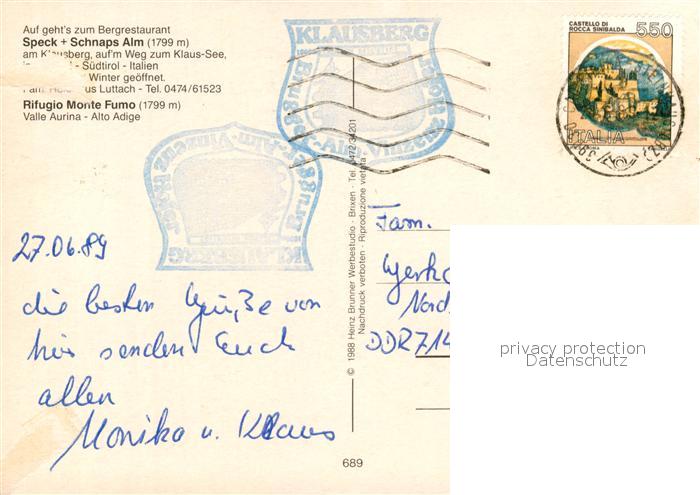 Auf geht's zum Bergrestaurant
Speck + Schnaps Alm (1799 m)
am Klausberg, auf'm Weg zum Klaus-See,
- Südtirol - Italien
Winter geöffnet.
Luttach - Tel. 0474/61523
Rifugio Monte Fumo (1799 m)
Valle Aurina - Alto Adige
KLAUSBERG
CASTELLO DI
ROCCA SINIBALDA
550
ITALIA
27.06.89
die besten Grüße von
hier senden Euch
allen
Monika u. Klaus
© 1988 Heinz Brunner Werbestudio - Brixen - Tel. 0472/34201
Nachdruck verboten - Riproduzione vietata
Fam.
DDR 714
689
privacy protection
Datenschutz